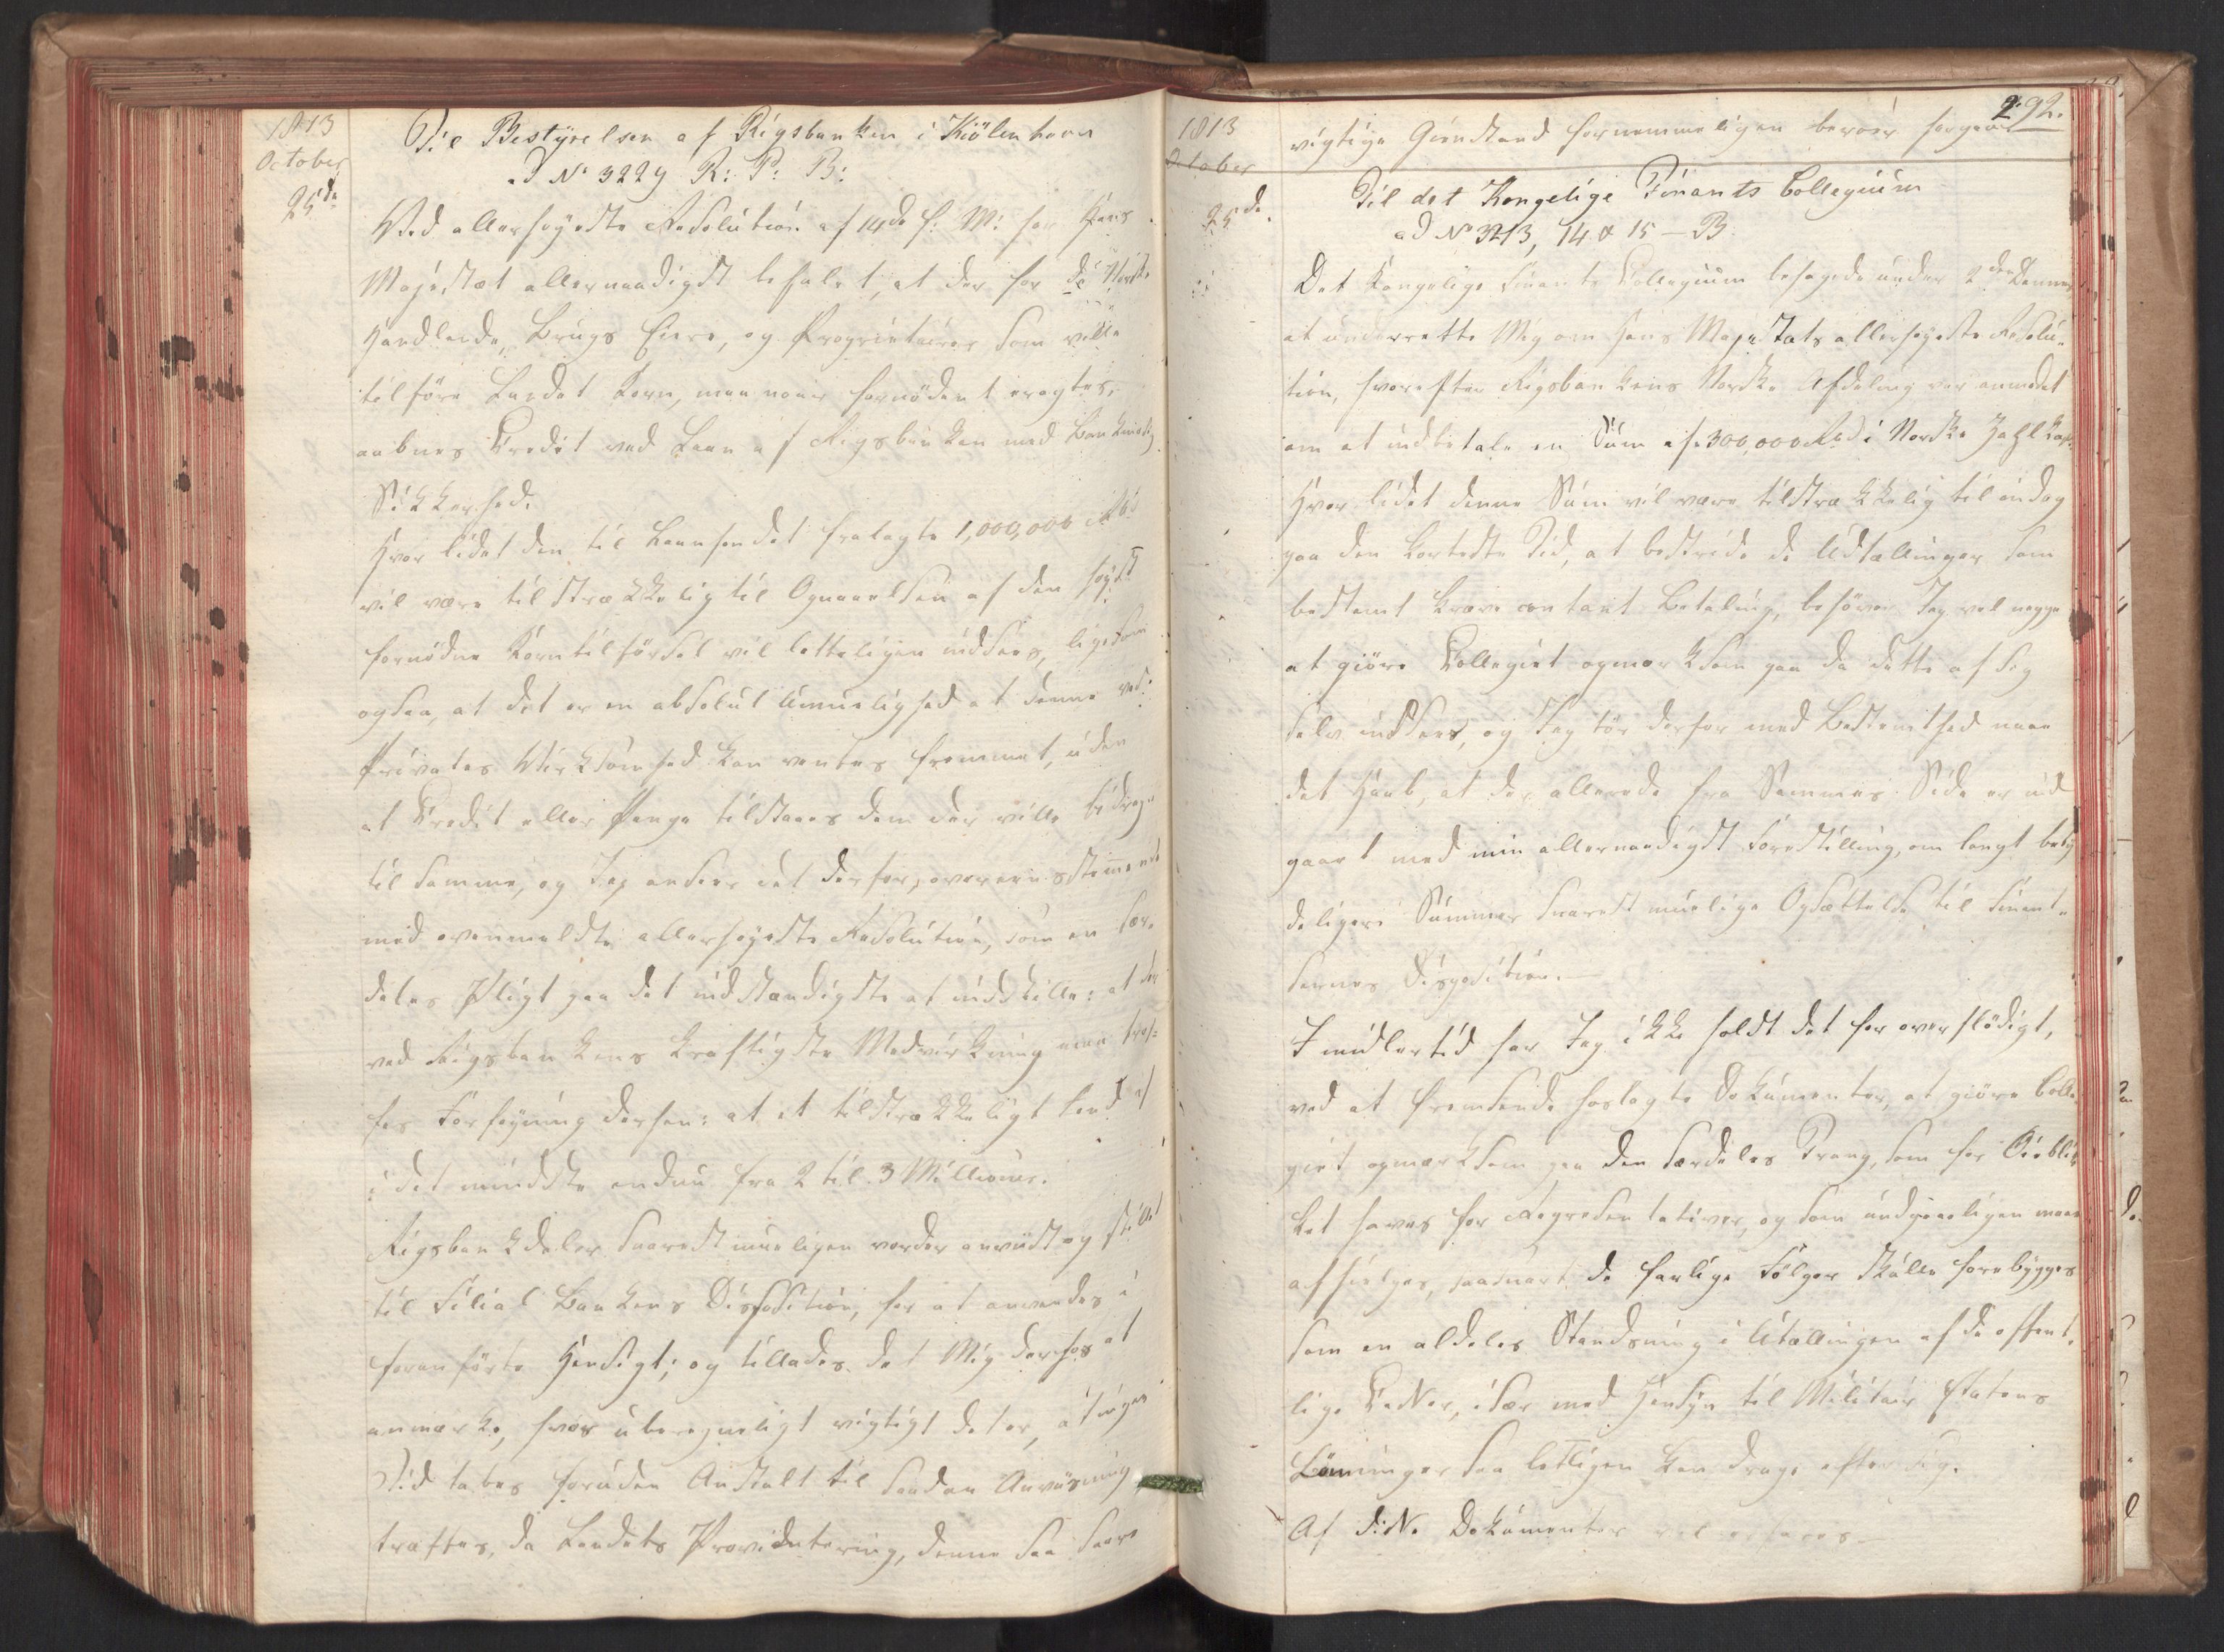 1813
October
25de
Til Bestyrelsen af Rigsbanken i Kiöbenhavn
ad No 3229 R: P: B:
Ved allerhøyeste Resolution af 14de f: M: har Hans
Majestæt allernaadigst befalet, at der for de Norske
Handlende, Brugs Eiere, og Proprietairer som ville
tilföre Landet Korn, maa naar fornödent eragtes,
aabnes Credit ved Laan af Rigsbanken mod Bankmæssig
Sikkerhed.
Hvor lidet den til Laanfondet henlagte 1,000,000 Rbd
vil være tilstrækkelig til Opnaaelsen af den høyst
fornödne Korntilförsel vil letteligen indsees, ligesom
ogsaa, at det er en absolut Umuelighed at denne ved
Privates Virksomhed kan ventes fremmet, uden
at Credit eller Penge tilstaaes dem der ville bidrage
til samme, og Jeg anseer det derfor, overeensstemmende
med ovenmeldte allerhøyeste Resolution, som en sær-
deles Pligt paa det indstændigste at indstille: at der
ved Rigsbankens kraftigste Medvirkning maa træf-
fes Forføyning derhen: at et tilstrækkeligt Fond af
i det mindste endnu fra 2 til 3 Millioner
Rigsbankdaler snarest mueligen vorder anviist og stillet
til Filial Bankens Disposition, for at anvendes i
foranførte Hensigt; og tillades det Mig derhos at
anmærke, hvor uberegneligt vigtigt det er, at ingen
Tid tabes forinden Anstalt til saadan Anviisning
træffes, da Landets Provideter­ing, denne saa saare
1813
October
25de
292.
vigtige Gienstand fornemmeligen beroer herpaa
Til det Kongelige Finants Collegium
ad No 3213, 14 & 15 – B.
Det Kongelige Finants Collegium behagede under 2den dennes
at underrette Mig om Hans Majestæts allerhøyeste Resolu-
tion, hvorefter Rigsbankens Norske Afdeling var anmodet
om at indbetale en Sum af 300,000 Rbd i Norske Zahlkasse
Hvor lidet denne Sum vil være tilstrækkelig til endog
paa den korteste Tid, at bestride de Udtællinger som
bestemt kræve contant Betaling, behöver Jeg vel neppe
at giöre Collegiet opmærksom paa da dette af sig
selv indsees, og Jeg tör derfor med Bestemthed nære
det Haab, at der allerede fra Sammes Side er ind-
gaaet med min allernaadigst Forestilling, om langt bety-
deligere Summers snarest muelige Opsættelse til Finant-
sernes Disposition.
Imidlertid har Jeg ikke holdt det for overflödigt,
ved at fremsende hoslagte Dokumenter, at giöre Colle-
giet opmærksom paa den særdeles Trang, som for Öieblik-
ket haves for Repræsentativer, og som undgaaeligen maae
afhielpes, saasnart de farlige Fölger skulle forebygges
som en aldeles Standsning i Utællingen af de offent-
lige Cassér, især med Hensyn til Militair Etatens
Lönninger saa letteligen kan drage efter sig.
Af d: N. Dokumenter vil erfares –